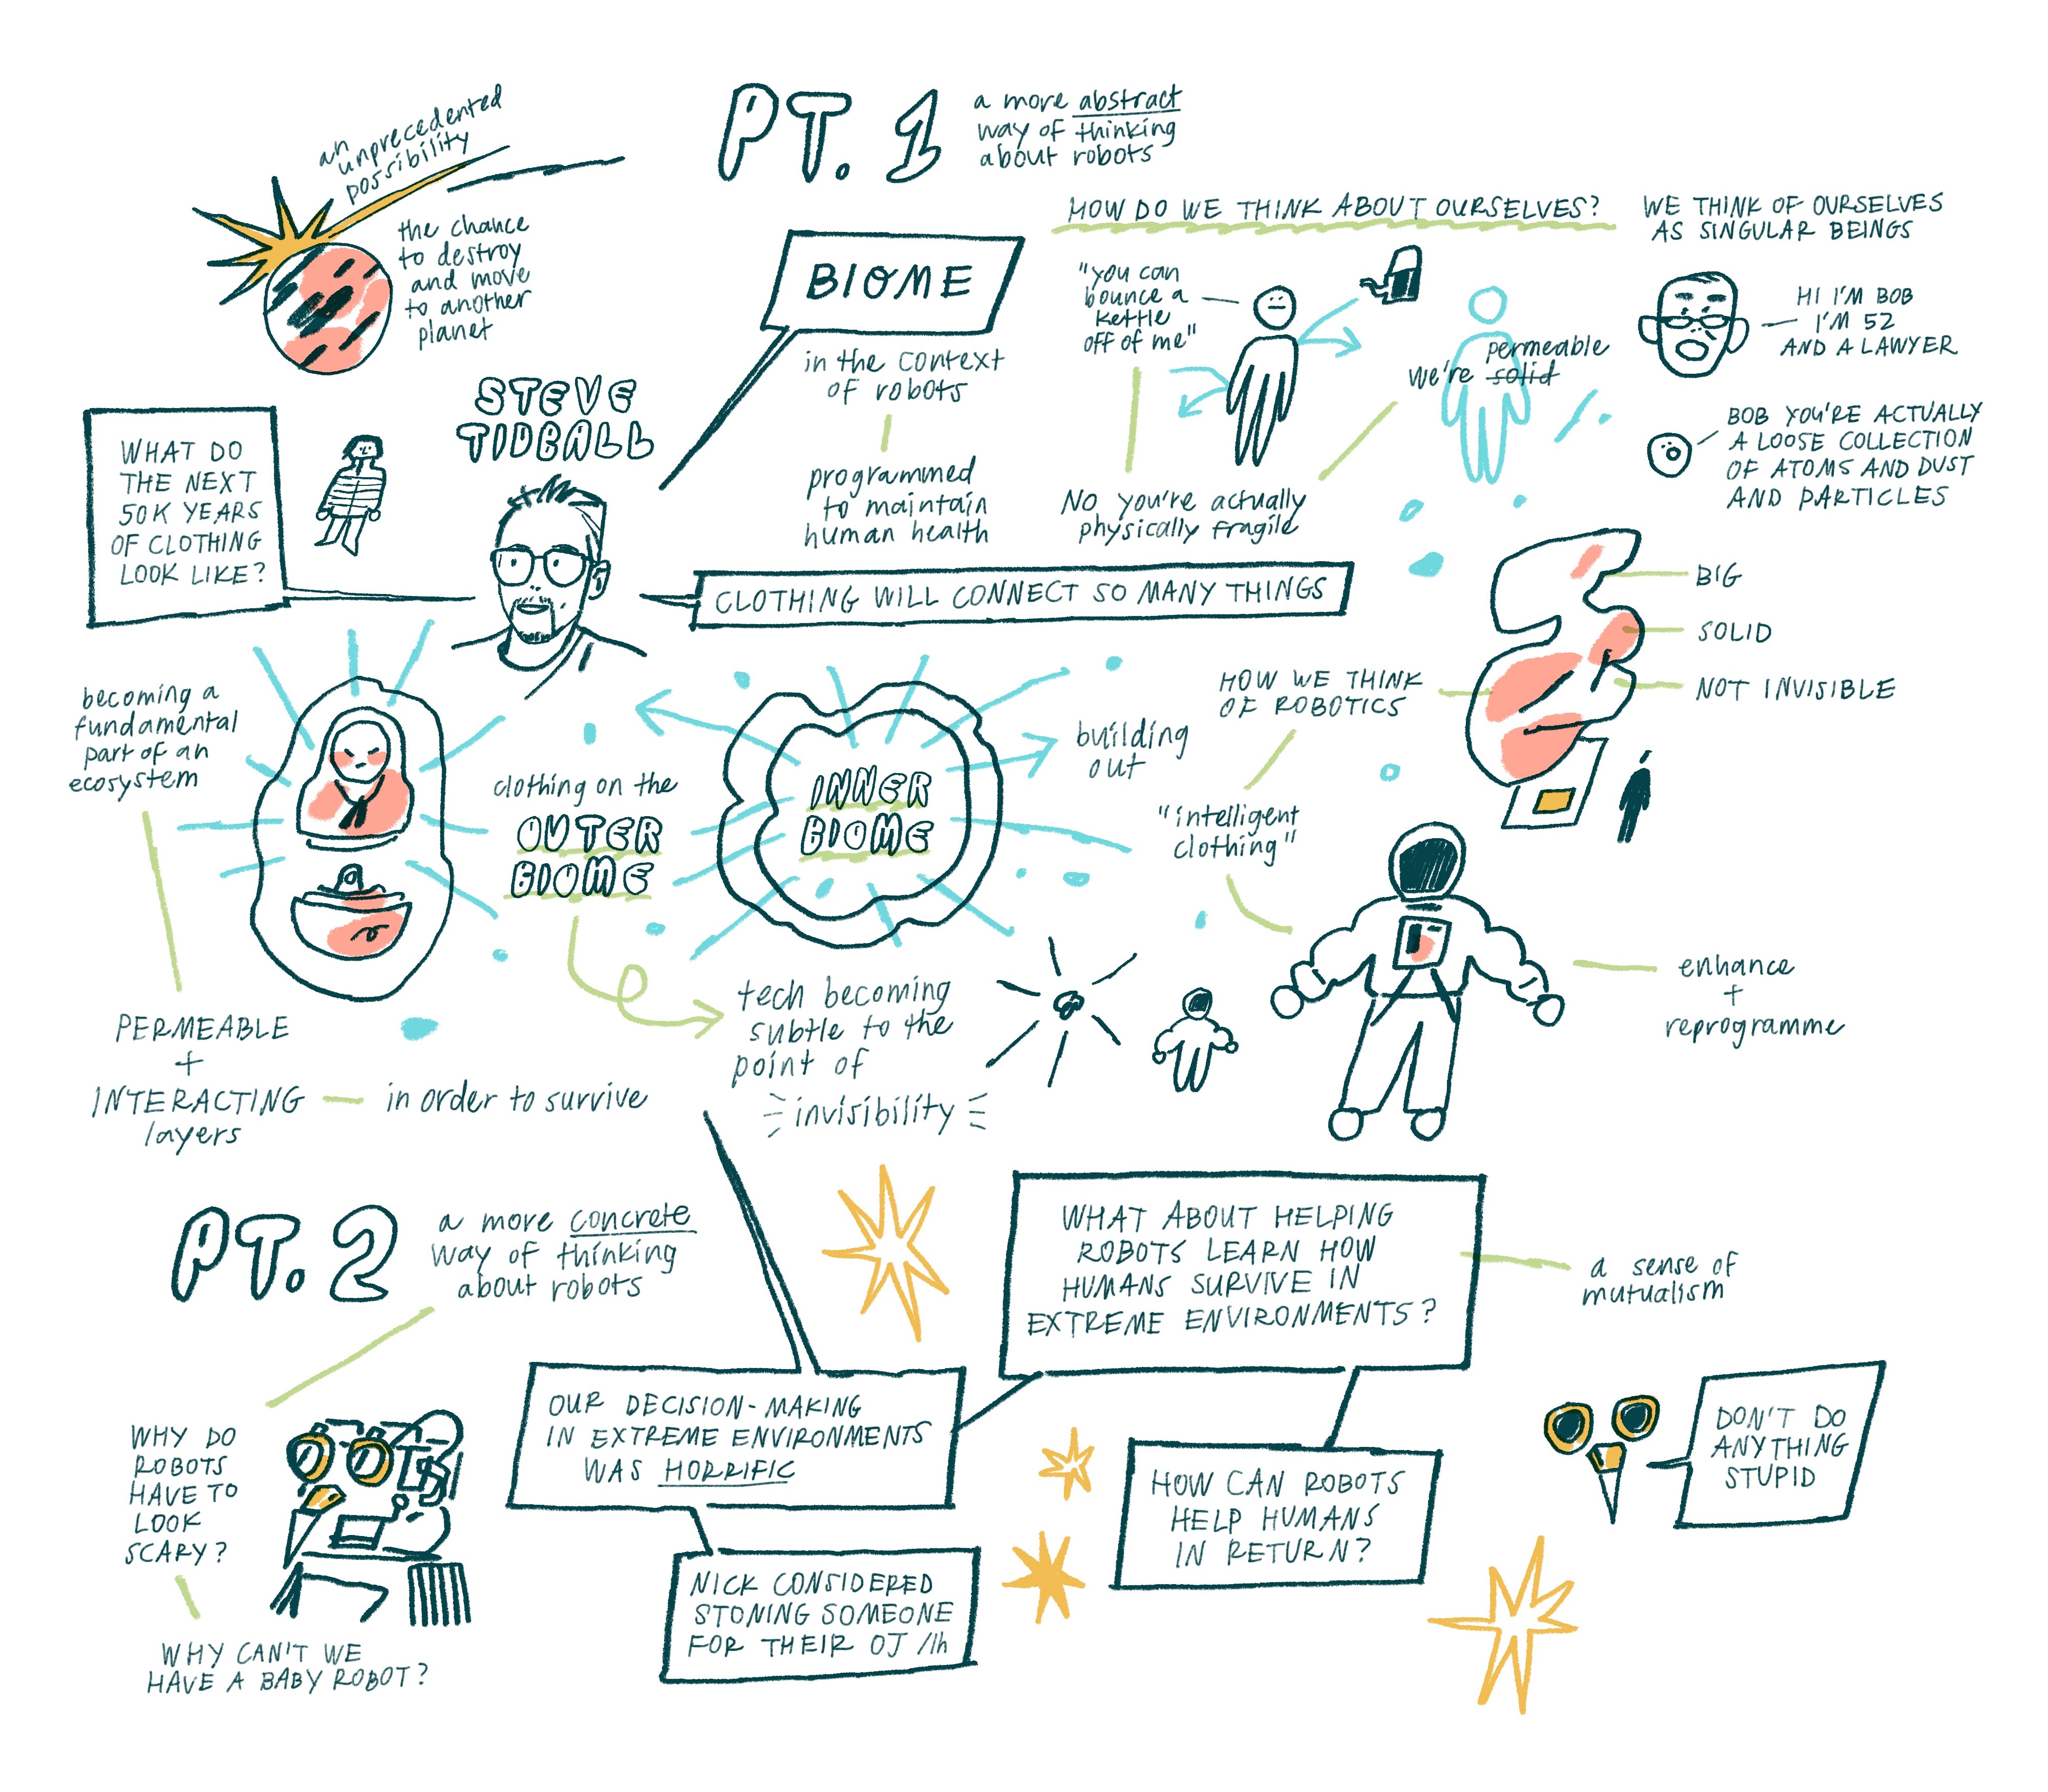 PT. 1
a more abstract
way of thinking
about robots
an
unprecedented
possibility
the chance
to destroy
and move
to another
planet
HOW DO WE THINK ABOUT OURSELVES?
WE THINK OF OURSELVES
AS SINGULAR BEINGS
BIOME
in the context
of robots
programmed
to maintain
human health
"you can
bounce a
kettle
off of me"
permeable
we're solid
HI I'M BOB
I'M 52
AND A LAWYER
BOB YOU'RE ACTUALLY
A LOOSE COLLECTION
OF ATOMS AND DUST
AND PARTICLES
No you're actually
physically fragile
STEVE
TIDBALL
WHAT DO
THE NEXT
50K YEARS
OF CLOTHING
LOOK LIKE?
CLOTHING WILL CONNECT SO MANY THINGS
BIG
SOLID
NOT INVISIBLE
HOW WE THINK
OF ROBOTICS
becoming a
fundamental
part of an
ecosystem
clothing on the
OUTER
BIOME
INNER
BIOME
building
out
"intelligent
clothing"
enhance
+
reprogramme
PERMEABLE
+
INTERACTING
layers
in order to survive
tech becoming
subtle to the
point of
invisibility
PT. 2
a more concrete
way of thinking
about robots
WHAT ABOUT HELPING
ROBOTS LEARN HOW
HUMANS SURVIVE IN
EXTREME ENVIRONMENTS?
a sense of
mutualism
OUR DECISION-MAKING
IN EXTREME ENVIRONMENTS
WAS HORRIFIC
WHY DO
ROBOTS
HAVE TO
LOOK
SCARY?
WHY CAN'T WE
HAVE A BABY ROBOT?
NICK CONSIDERED
STONING SOMEONE
FOR THEIR OJ /lh
HOW CAN ROBOTS
HELP HUMANS
IN RETURN?
DON'T DO
ANYTHING
STUPID